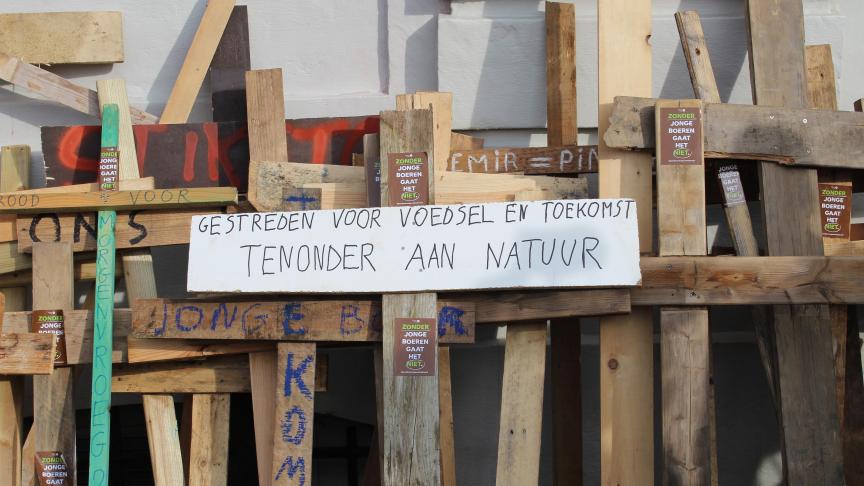 STIKSTO
ZONDER
JONGE
BOEREN
GAAT
HET
NIET.
ZONDER
JONGE
BOEREN
GAAT HET
NIET.
EMIR = PIN
ZONDER
JONGE
BOEREN
GAAT HET
NIET.
ZONDER
JONGE
BOEREN
GAAT
HET
NIET.
ZONDER
JONGE
BOEREN
GAAT
HET
NIET.
ROOD VOOR
ONS
MORGENVROEG
GESTREDEN VOOR VOEDSEL EN TOEKOMST
TENONDER AAN NATUUR
JONGE B R
ZONDER
JONGE
BOEREN
GAAT HET
NIET.
ZONDER
JONGE
BOEREN
GAAT
HET
NIET.
ZONDER
JONGE
BOEREN
GAAT
HET
NIET.
E
KOM
ZONDER
JONGE
BOEREN
GAAT